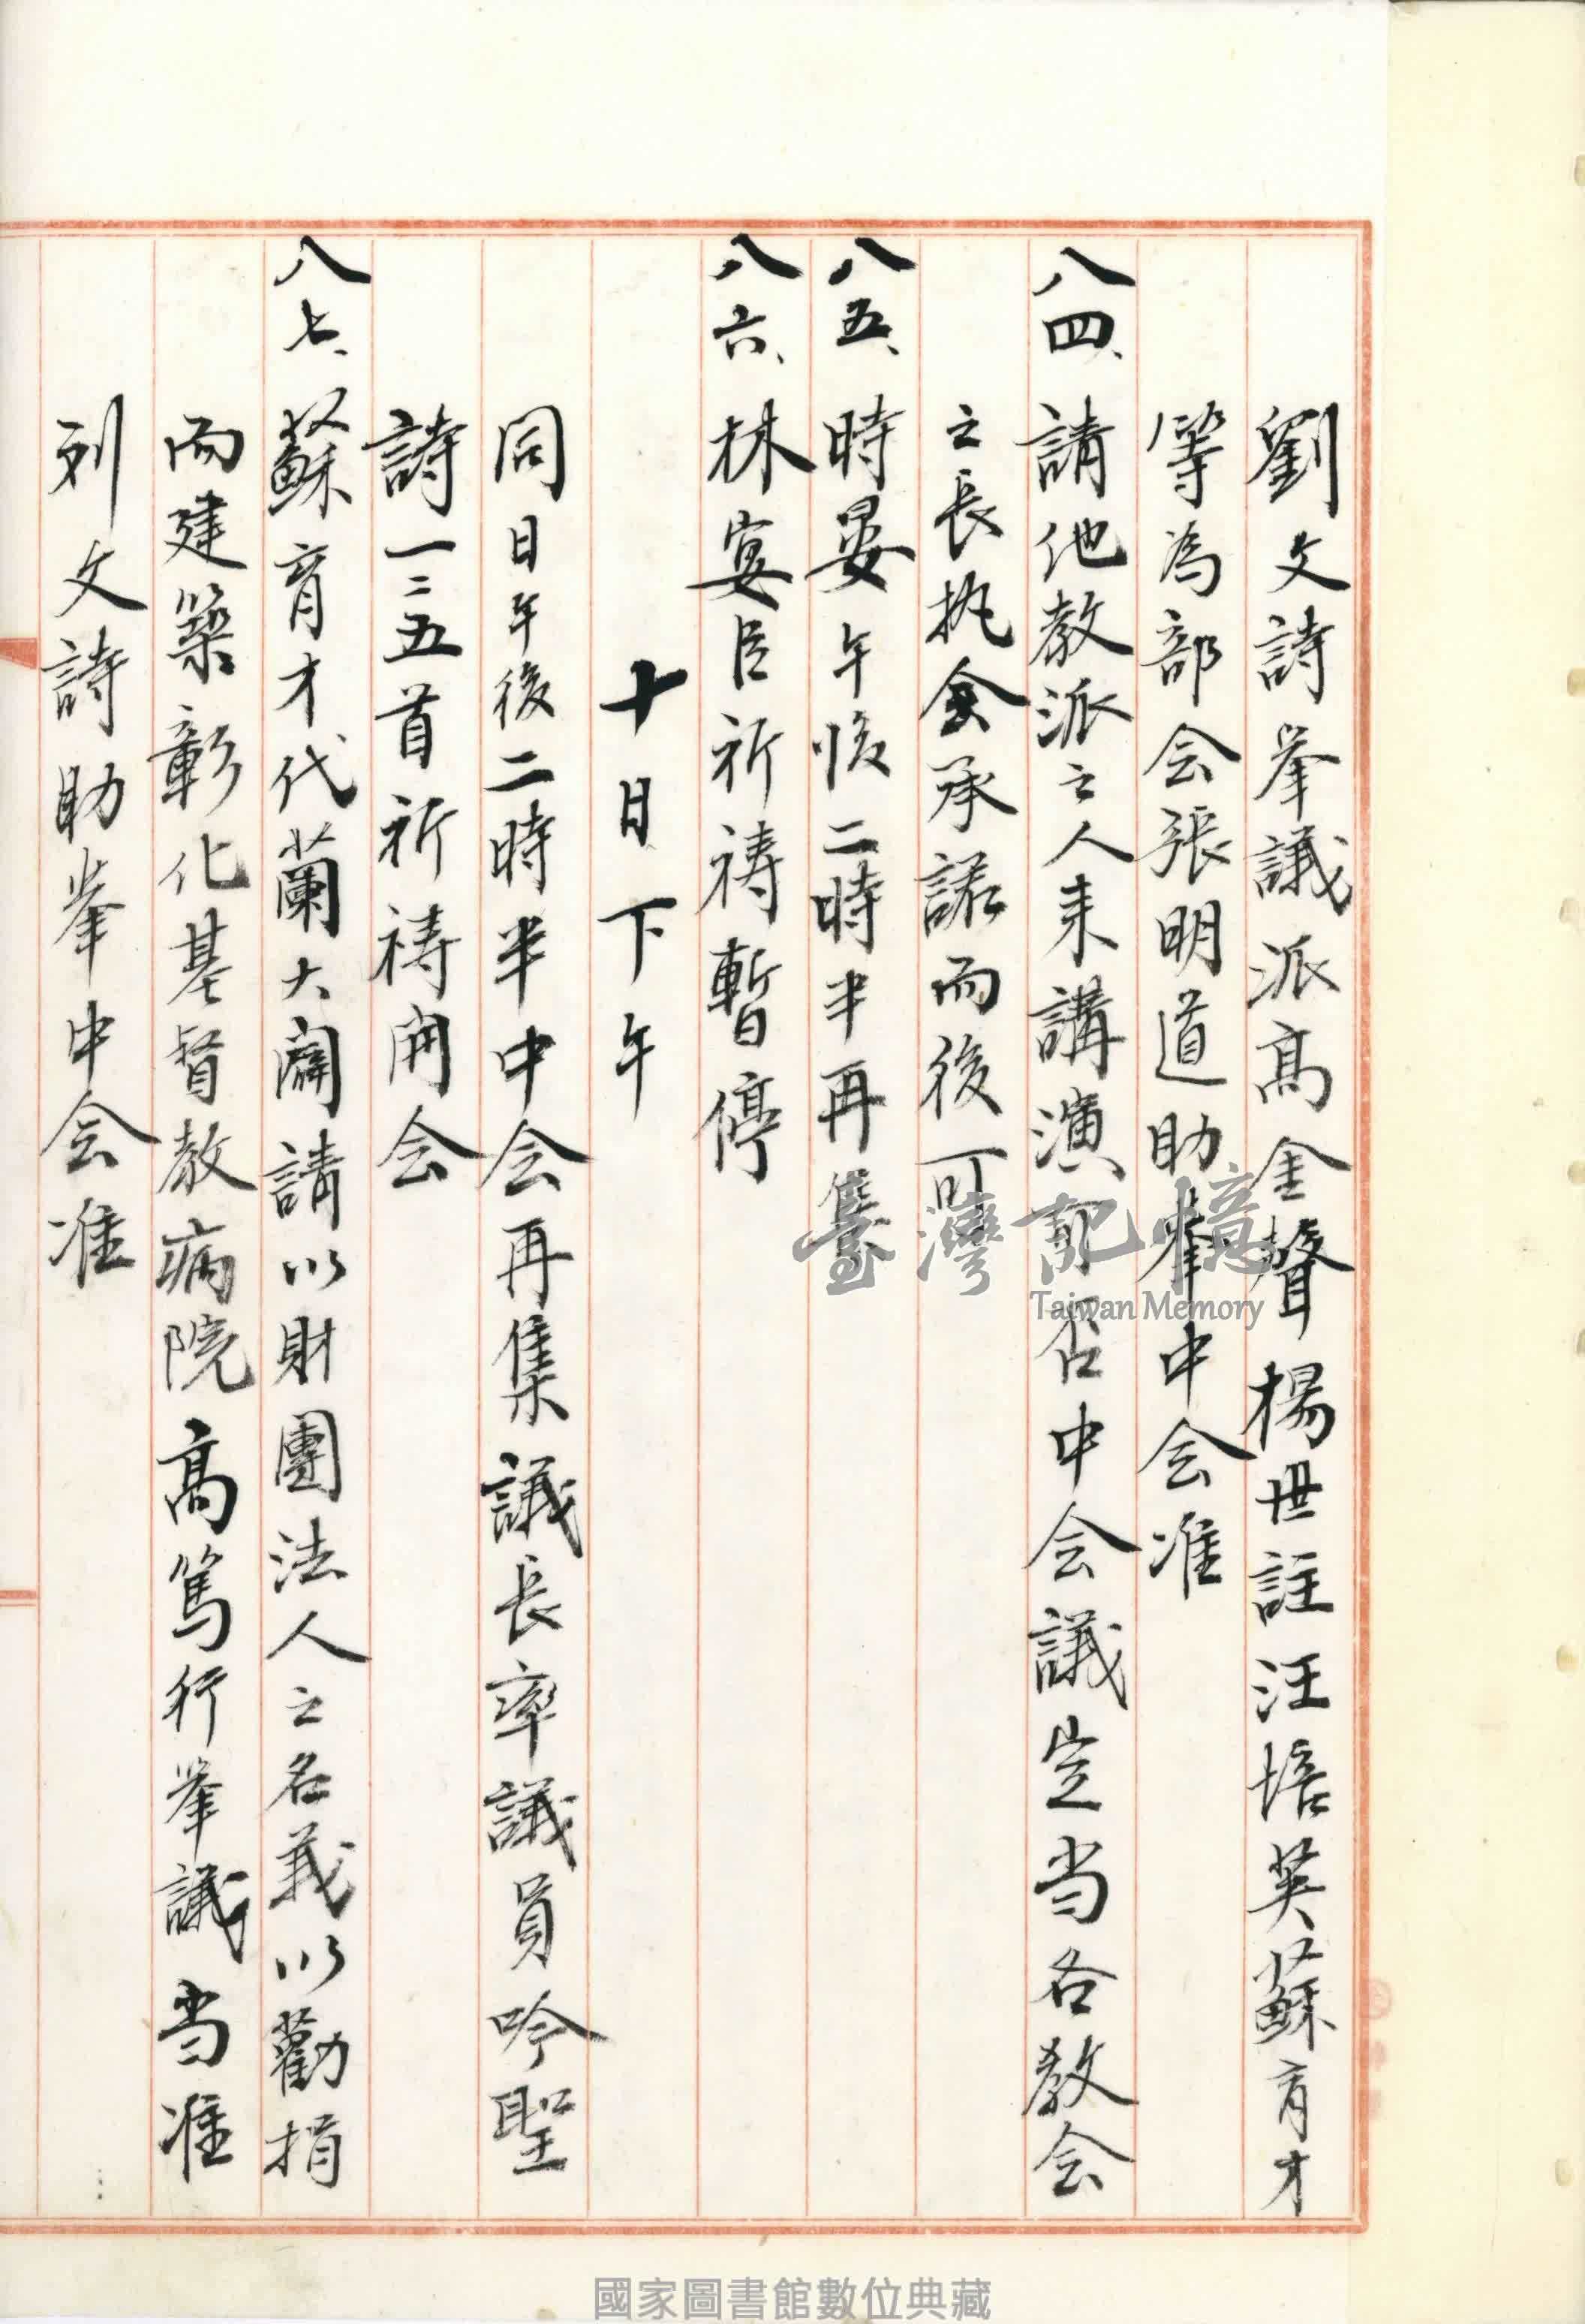 劉文詩举議派高金聲楊世註汪培英蘇育才
等為部会張明道助举中会准
八四、請他教派之人来講演可否中会議定当各教会
之長执会承諾而後可
八五、時晏午後二時半再集
八六、林宴臣祈禱暫停
十日下午
同日午後二時半中会再集議長率議員吟聖
詩一三五首祈禱開会
八七、蘇育才代蘭大闢請以財團法人之名義以勸捐
而建築彰化基督教病院高篤行举議当准
列文詩助举中会准
臺灣記憶
Taiwan Memory
國家圖書館數位典藏